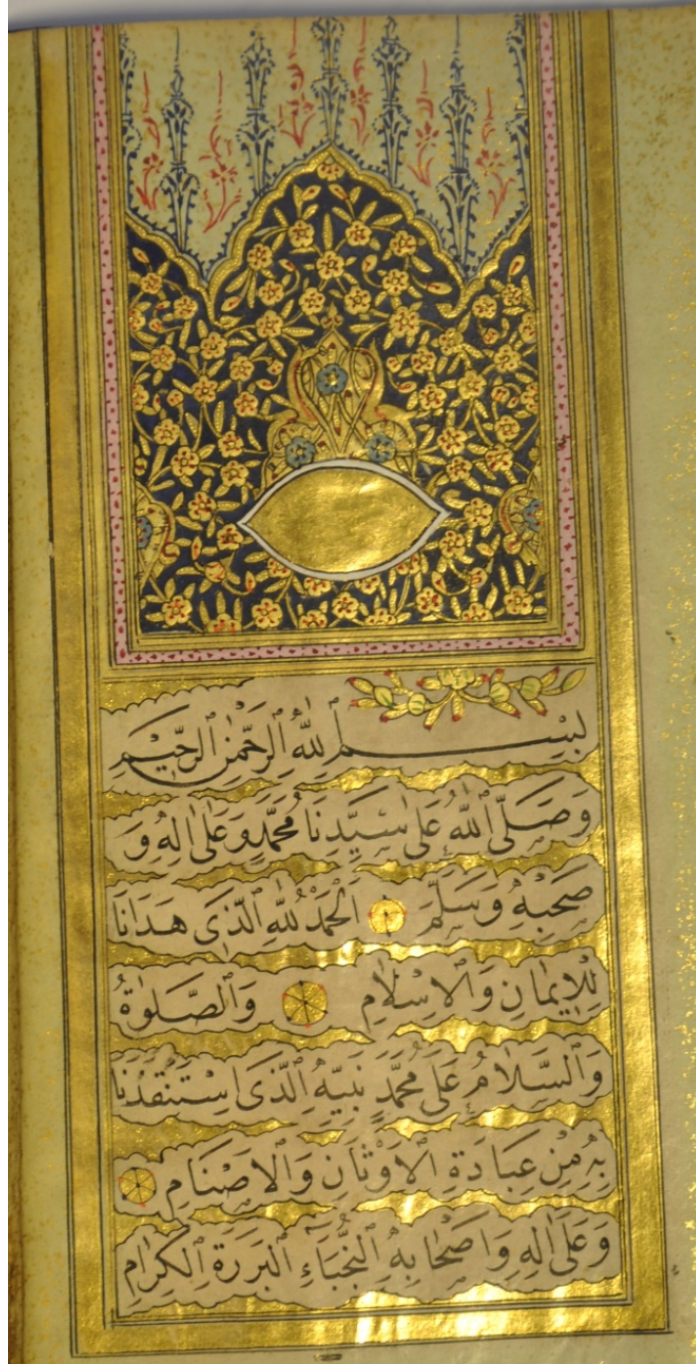 بِسْمِ اللهِ الرَّحْمٰنِ الرَّحِيْمِ
وَصَلَّى اللهُ عَلٰى سَيِّدِنَا مُحَمَّدٍ وَعَلٰى اٰلِهِ وَ
صَحْبِهِ وَسَلَّمَ اَلْحَمْدُ لِلّٰهِ الَّذِى هَدَانَا
لِلْاِيمَانِ وَالْاِسْلَامِ وَالصَّلٰوةُ
وَالسَّلَامُ عَلٰى مُحَمَّدٍ نَبِيِّهِ الَّذِى اسْتَنْقَذَنَا
بِهِ مِنْ عِبَادَةِ الْاَوْثَانِ وَالْاَصْنَامِ
وَعَلٰى اٰلِهِ وَاَصْحَابِهِ النُّجَبَاءِ الْبَرَرَةِ الْكِرَامِ